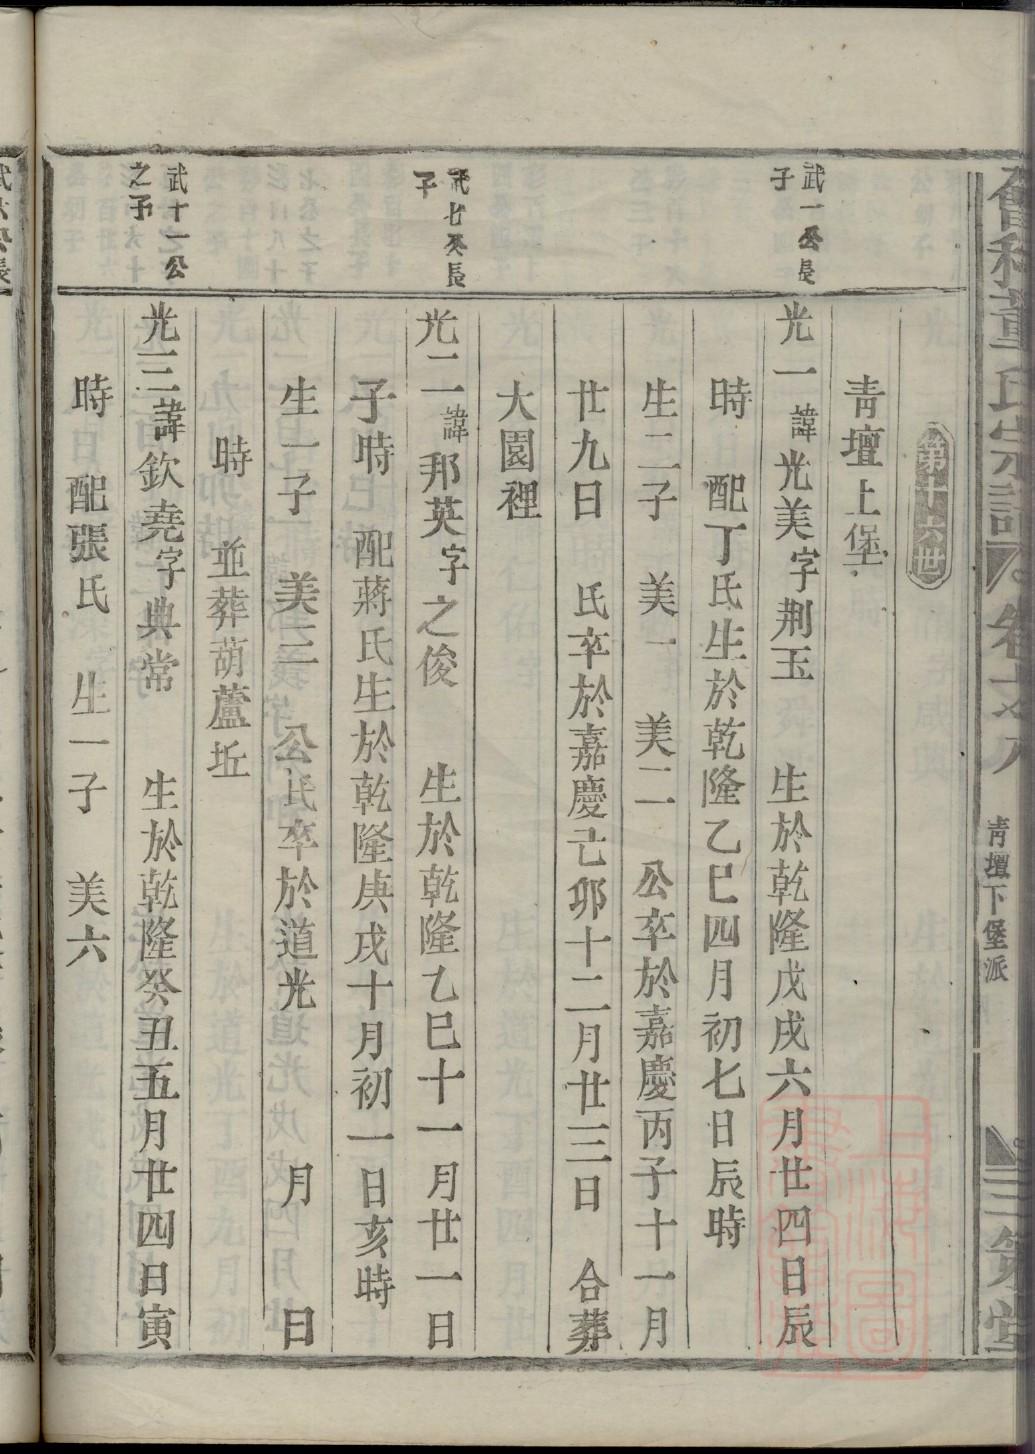 董氏宗譜 卷之八 青壇下堡派 三策堂
第十六世
青壇上堡
武一公長子
光一 諱光美 字荆玉 生於乾隆戊戌六月廿四日辰
時 配丁氏生於乾隆乙巳四月初七日辰時
生二子 美一 美二 公卒於嘉慶丙子十一月
廿九日 氏卒於嘉慶己卯十二月廿三日 合葬
大園裡
武七公長子
光二 諱邦英 字之俊 生於乾隆乙巳十一月廿一日
子時 配蔣氏生於乾隆庚戌十月初一日亥時
生一子 美三 公氏卒於道光 月 日
時 並葬葫蘆坵
武十一公之子
光三 諱欽堯 字典常 生於乾隆癸丑五月廿四日寅
時 配張氏 生一子 美六